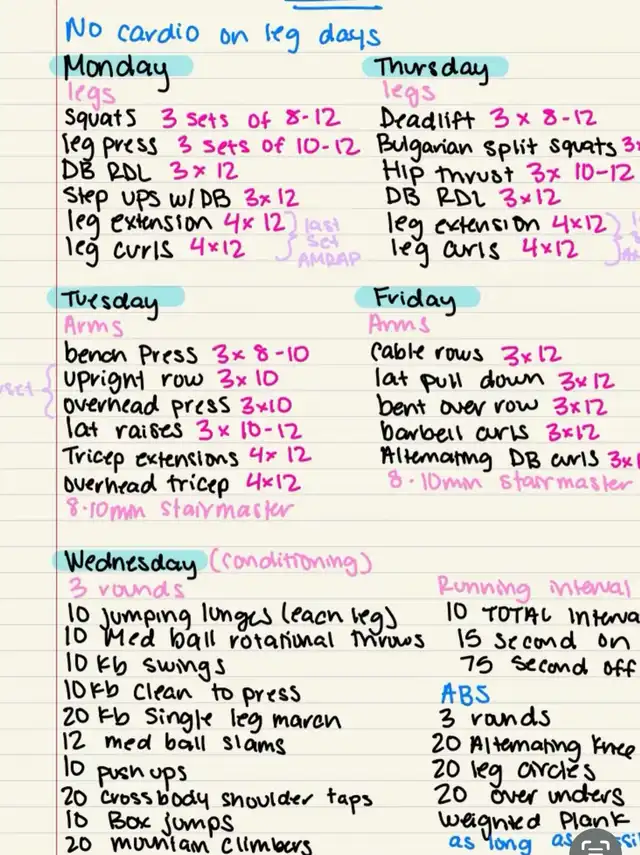 No cardio on leg days
Monday
legs
Squats 3 sets of 8-12
leg press 3 sets of 10-12
DB RDL 3x12
Step ups w/DB 3x12
leg extension 4x12
leg curls 4x12
last
set
AMRAP
Thursday
legs
Deadlift 3 x 8-12
Bulgarian split squats 3x
Hip thrust 3x 10-12
DB RDL 3x12
leg extension 4x12
leg curls 4x12
Tuesday
Arms
bench Press 3x 8-10
upright row 3x10
overhead press 3x10
lat raises 3x 10-12
Tricep extensions 4x 12
overhead tricep 4x12
8-10min stairmaster
Friday
Arms
cable rows 3x12
lat pull down 3x12
bent over row 3x12
barbell curls 3x12
Alternating DB curls 3x1
8-10min stairmaster
Wednesday (conditioning)
3 rounds
10 jumping lunges (each leg)
10 Med ball rotational throws
10 Kb swings
10 Kb clean to press
20 Kb single leg march
12 med ball slams
10 push ups
20 crossbody shoulder taps
10 Box jumps
20 mountain climbers
Running interval
10 TOTAL interva
15 second on
75 second off
ABS
3 rounds
20 Alternating knee
20 leg circles
20 over unders
Weighted Plank
as long as